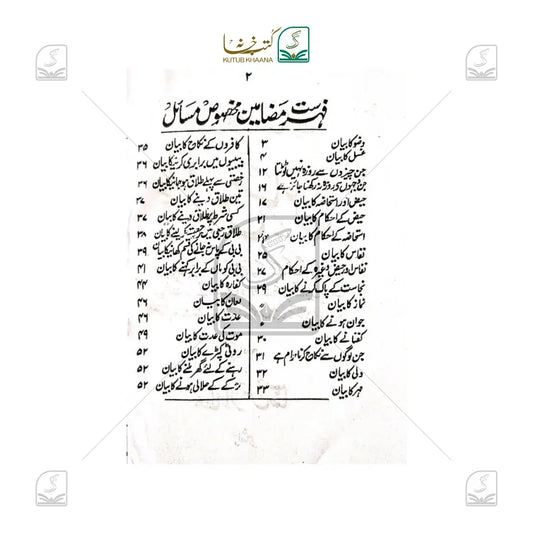 کتب خانہ
KUTUB KHAANA
۲
فہرست مضامین مخصوص مسائل
وضو کا بیان ۳
غسل کا بیان ۴
جن چیزوں سے روزہ نہیں ٹوٹتا ۱۲
جن وجہوں سے روزہ نہ رکھنا جائز ہے ۱۶
حیض اور استحاضہ کا بیان ۱۷
حیض کے احکام کا بیان ۲۱
استحاضہ کے احکام کا بیان ۲۴
نفاس کا بیان ۲۵
نفاس اور حیض وغیرہ کے احکام ۲۷
نجاست کے پاک کرنے کا بیان ۲۹
نماز کا بیان
جوان ہونے کا بیان
کفنانے کا بیان ۳۰
جن لوگوں سے نکاح کرنا حرام ہے ۳۱
ولی کا بیان ۳۲
مہر کا بیان ۳۳
کافروں کے نکاح کا بیان ۳۵
بیبیوں میں برابری کرنیکا بیان ۳۶
رخصتی سے پہلے طلاق ہو جانیکا بیان ۳۶
تین طلاق دینے کا بیان ۳۷
کسی شرط پر طلاق دینے کا بیان ۳۷
طلاق رجعی میں رجعت کر لینے کا بیان ۳۸
بی بی کے پاس نہ جانے کی قسم کھانیکا بیان ۳۹
بی بی کو ماں کے برابر کہنے کا بیان ۴۱
کفارہ کا بیان ۴۴
لعان کا بیان ۴۶
عدت کا بیان ۴۶
موت کی عدت کا بیان ۴۹
روٹی کپڑے کا بیان ۵۲
رہنے کے لئے گھر ملنے کا بیان ۵۲
لڑکے کے حلالی ہونے کا بیان ۵۲